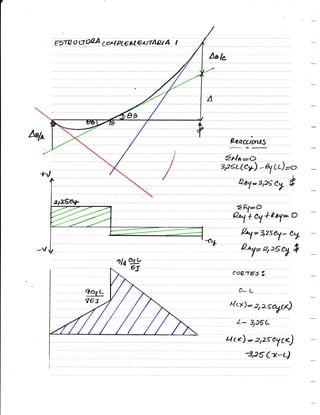 ESTRUCTURA COMPLEMENTARIA 1
ΔB/C
Δ
θB1
B
θB
ΔB/A
Reacciones
ΣMA=0
3,25L(Cy)-By(L)=0
RBy=3,25Cy
+V
2,25Cy
ΣFy=0
RAy+Cy+RBy=0
RAy=3,25Cy-Cy
RAy=2,25Cy
-Cy
-V
9/4 CyL/EI
9CyL
8EI
CORTES:
0-L
M(x)=2,25Cy(x)
L-3,25L
M(x)=2,25Cy(x)
-3,25(x-L)